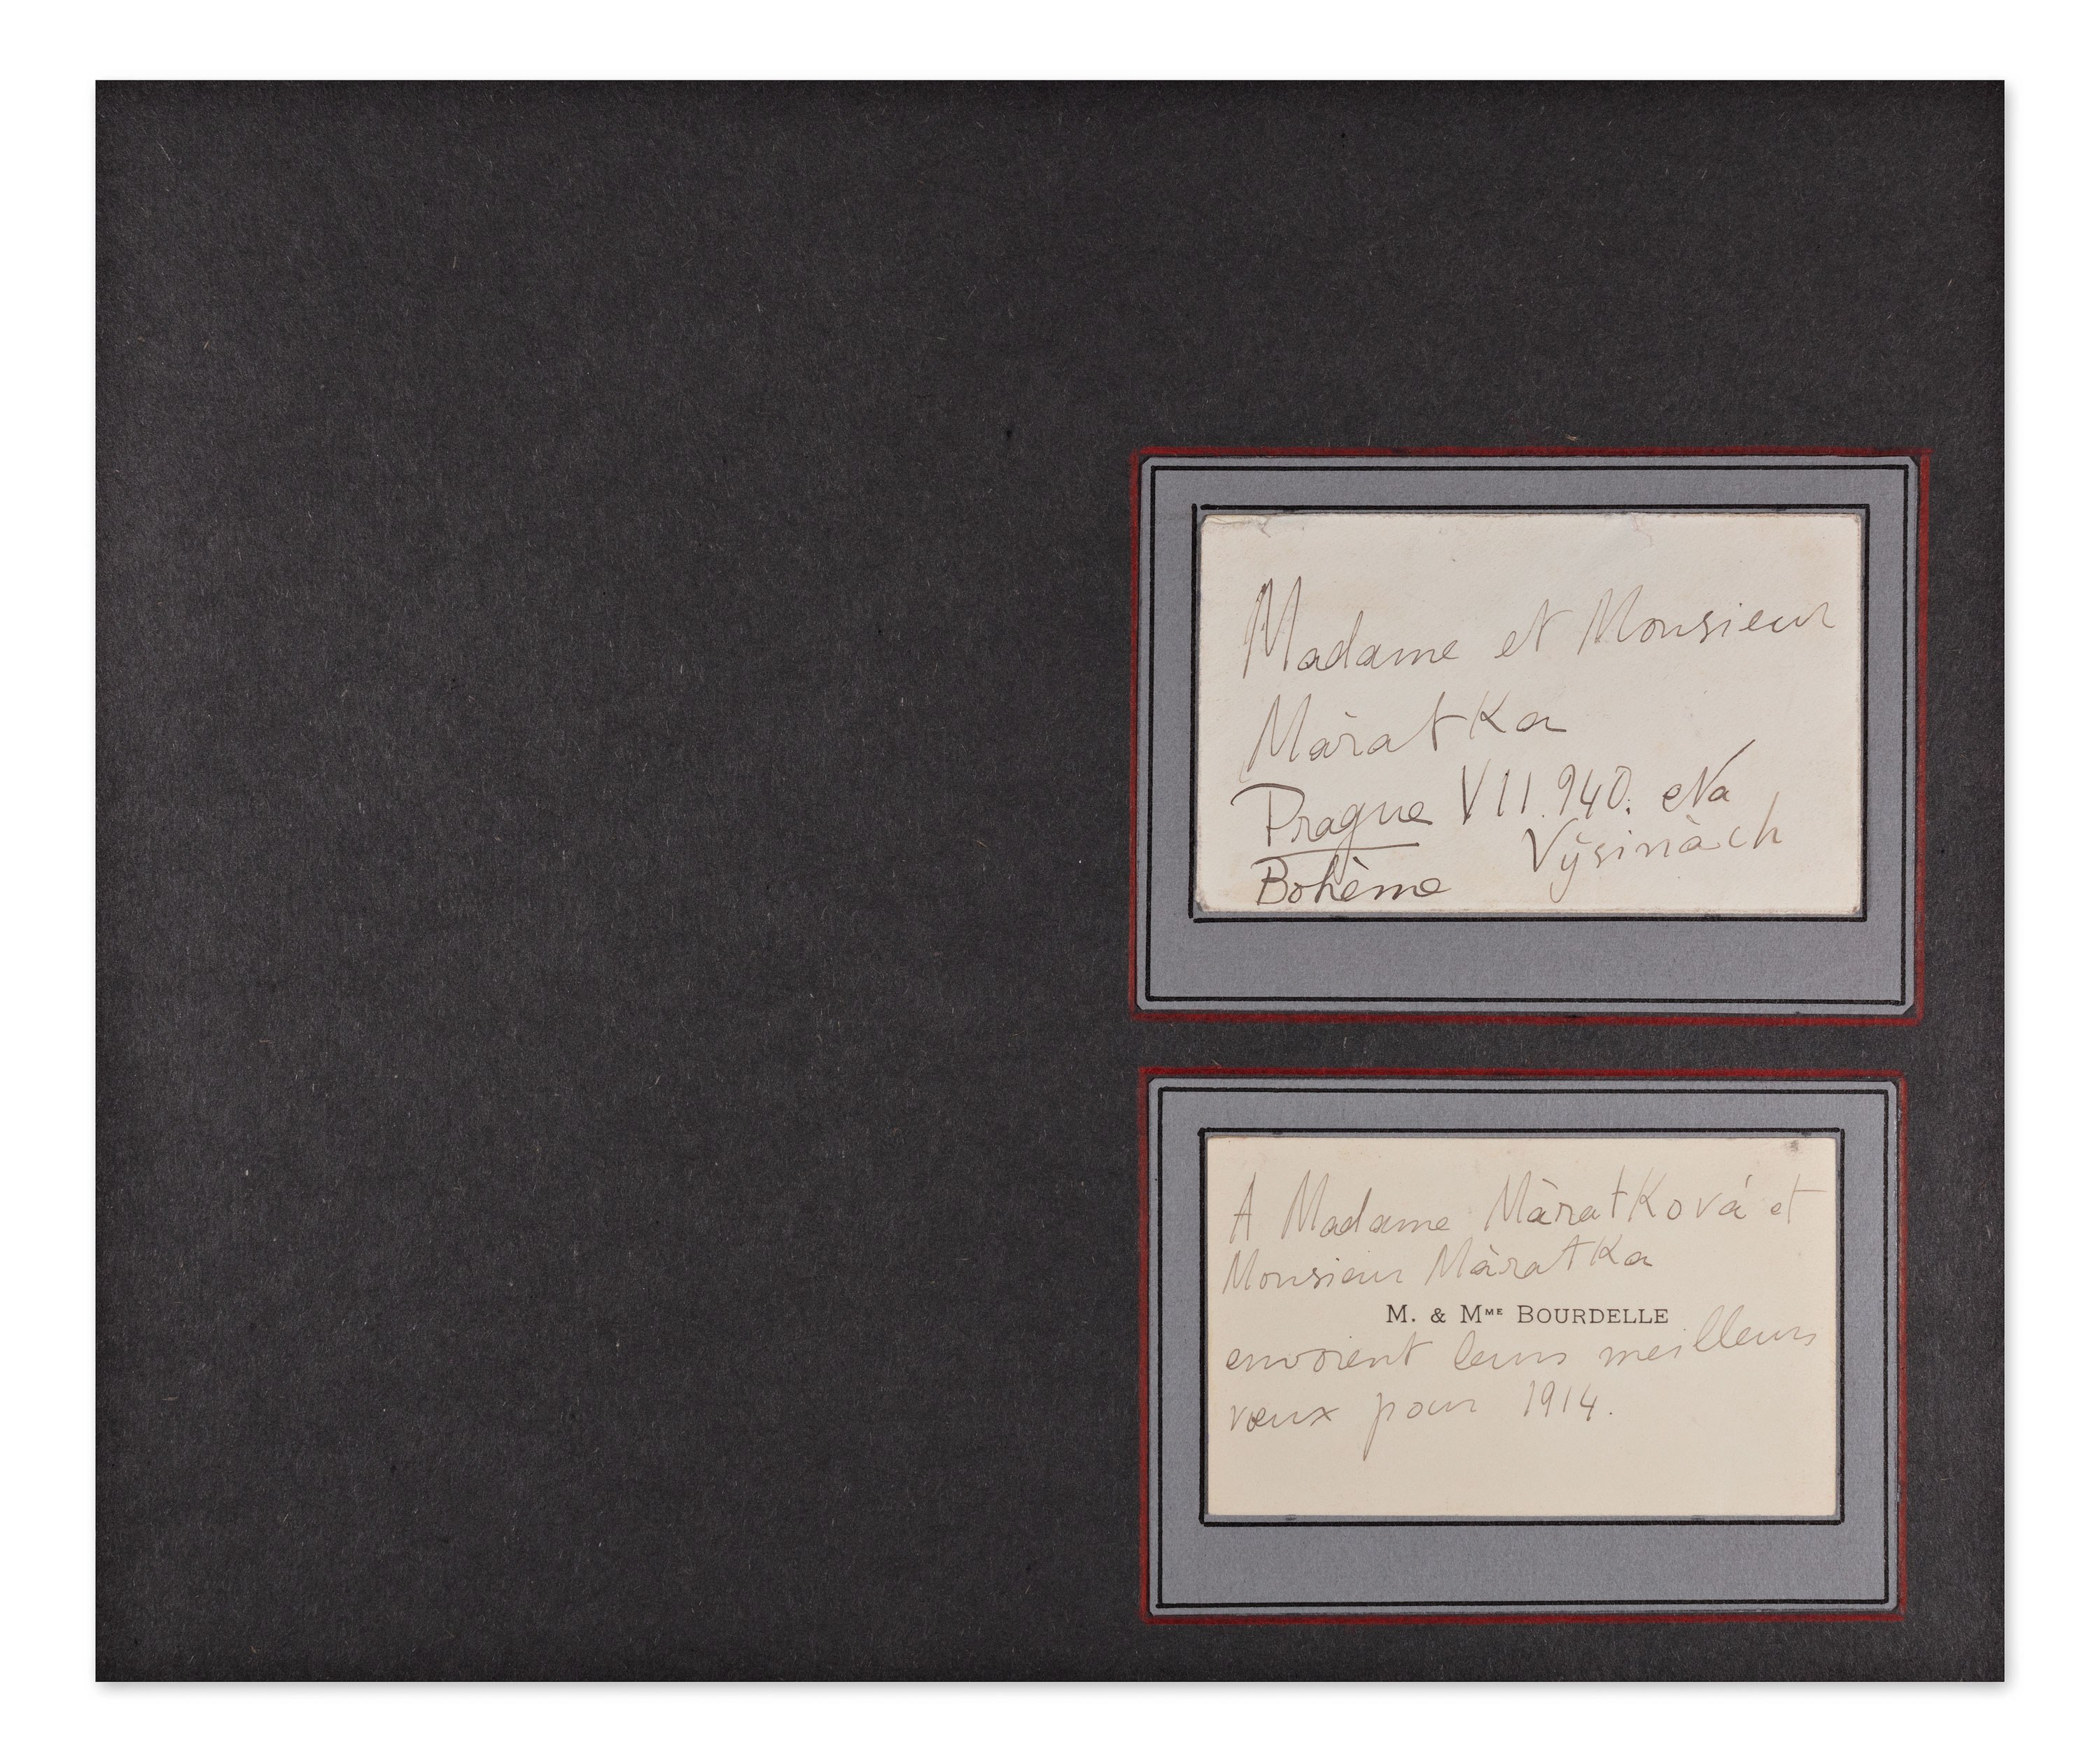 Madame et Monsieur
Màratka
Prague VII.940. Na
Výsinàch
Bohème
A Madame Màratková et
Monsieur Màratka
M. & Mme BOURDELLE
envoient leurs meilleurs
vœux pour 1914.